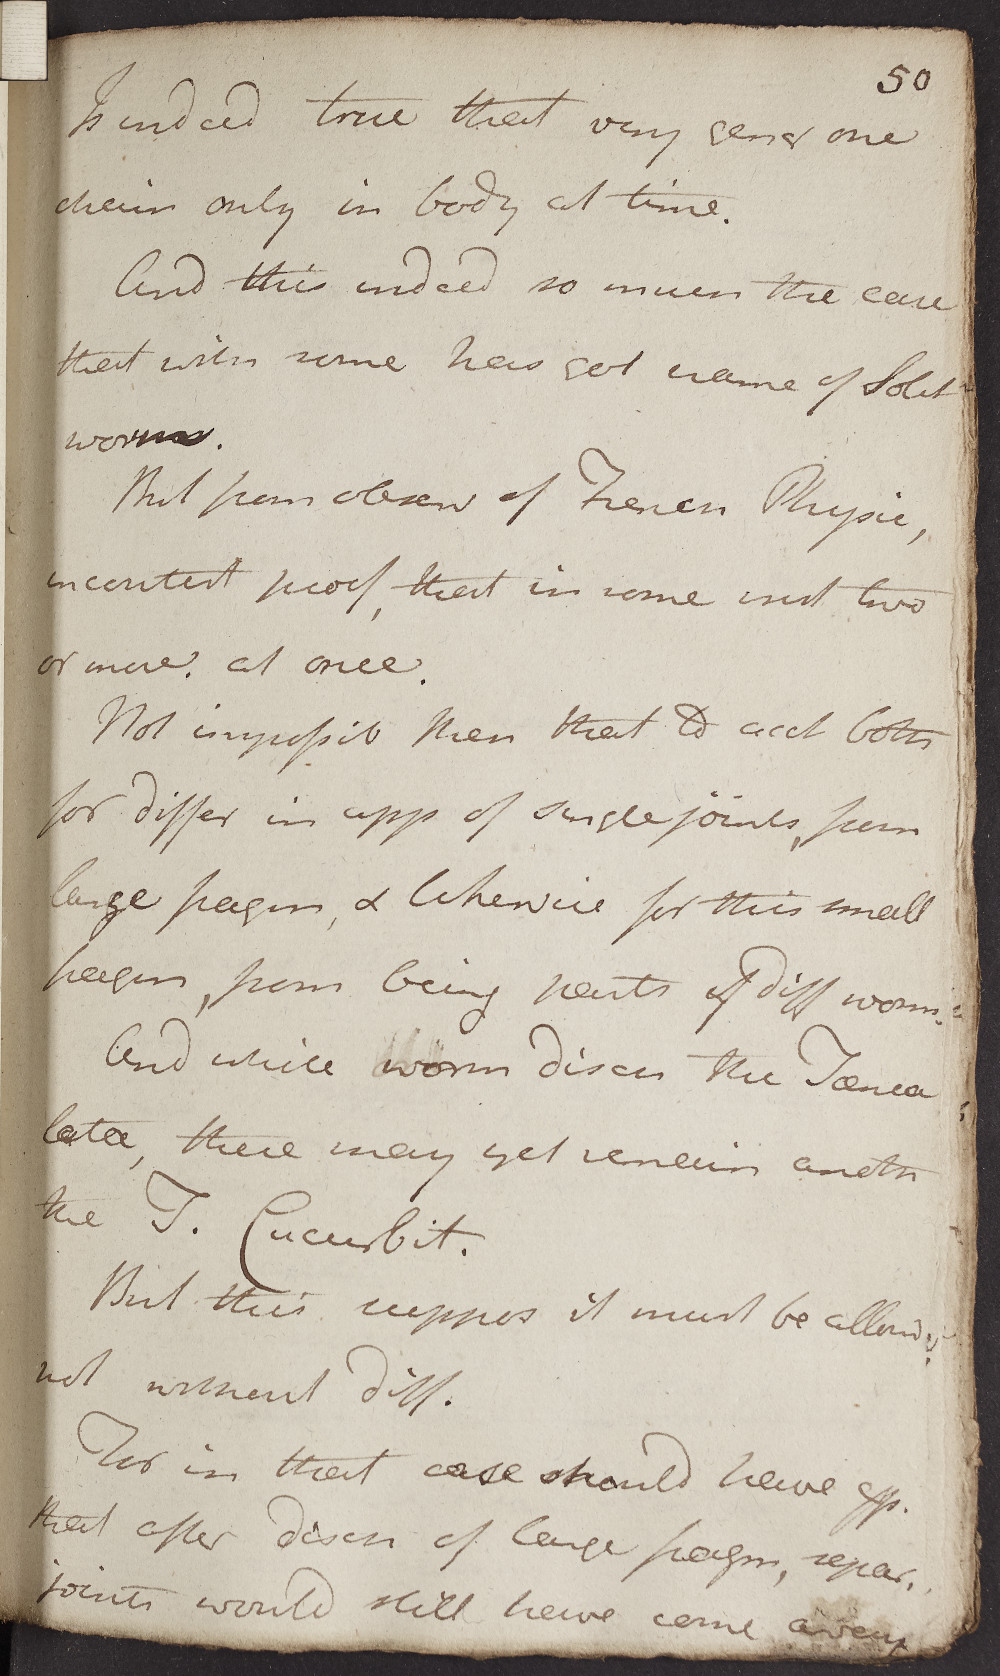 50
Is indeed true that very gener one
chain only in body at time.
And this indeed so much the case
that with some has got name of Solit
worm.
But from observ of French Physic,
incontest proof, that in some inst two
or more. at once.
Not impossib then that to acct both
for differ in app of single joints, from
large fragm, & likewise for this small
fragm, from being parts of diff worms.
And while worm disch the Tænea
latæ, there may yet remain anoth
the T. Cucurbit.
But this suppos it must be allowd.
not without diff.
For in that case should have exp.
that after disch of large fragm, separ.
joints would still have come away